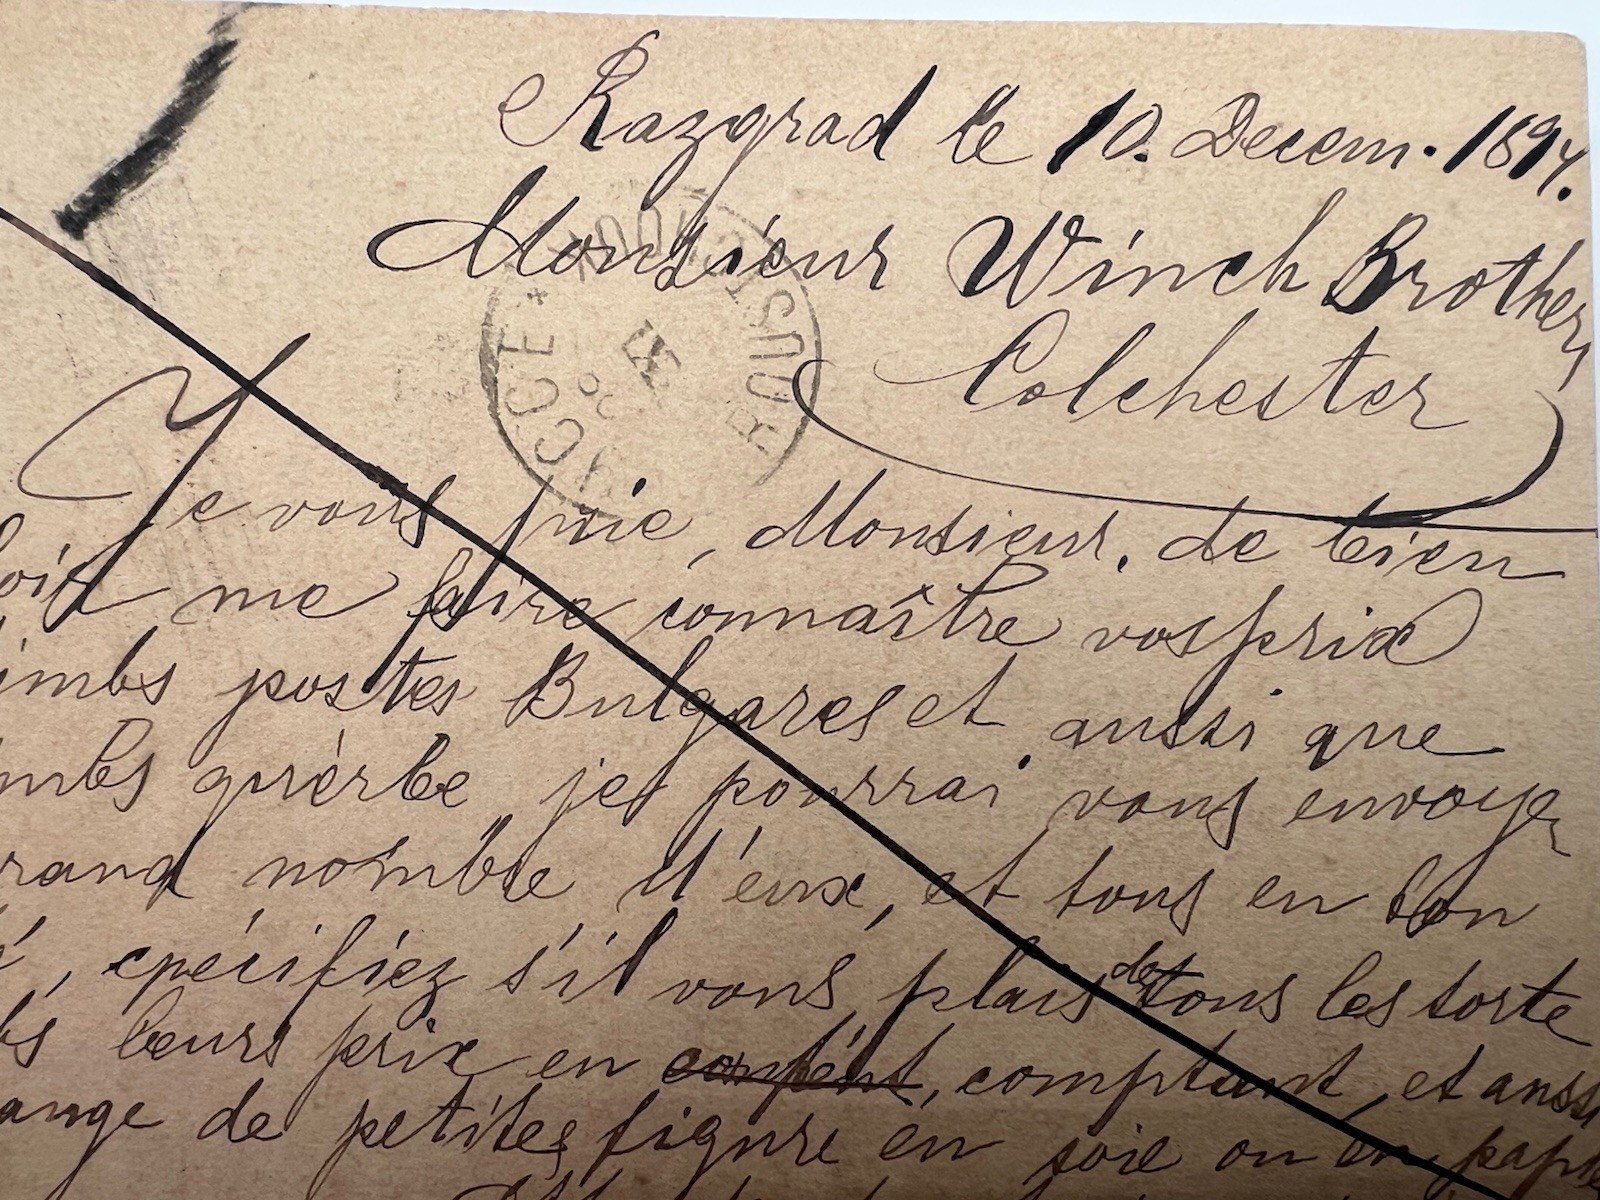 Razgrad le 10. Decem. 1894.
Monsieur Winch Brothers
Colchester
Je vous prie, Monsieur, de bien
me faire connaître vos prix
timbs postes Bulgares et aussi que
timbs je pourrai vous envoyer
grand nombre d'eux, et tous en bon
, cpécifiez s'il vous plais de tous les sorte
leurs prix en contént, comptant, et aussi
ange de petites figure en soie ou en papie
ROUSTCHOUK